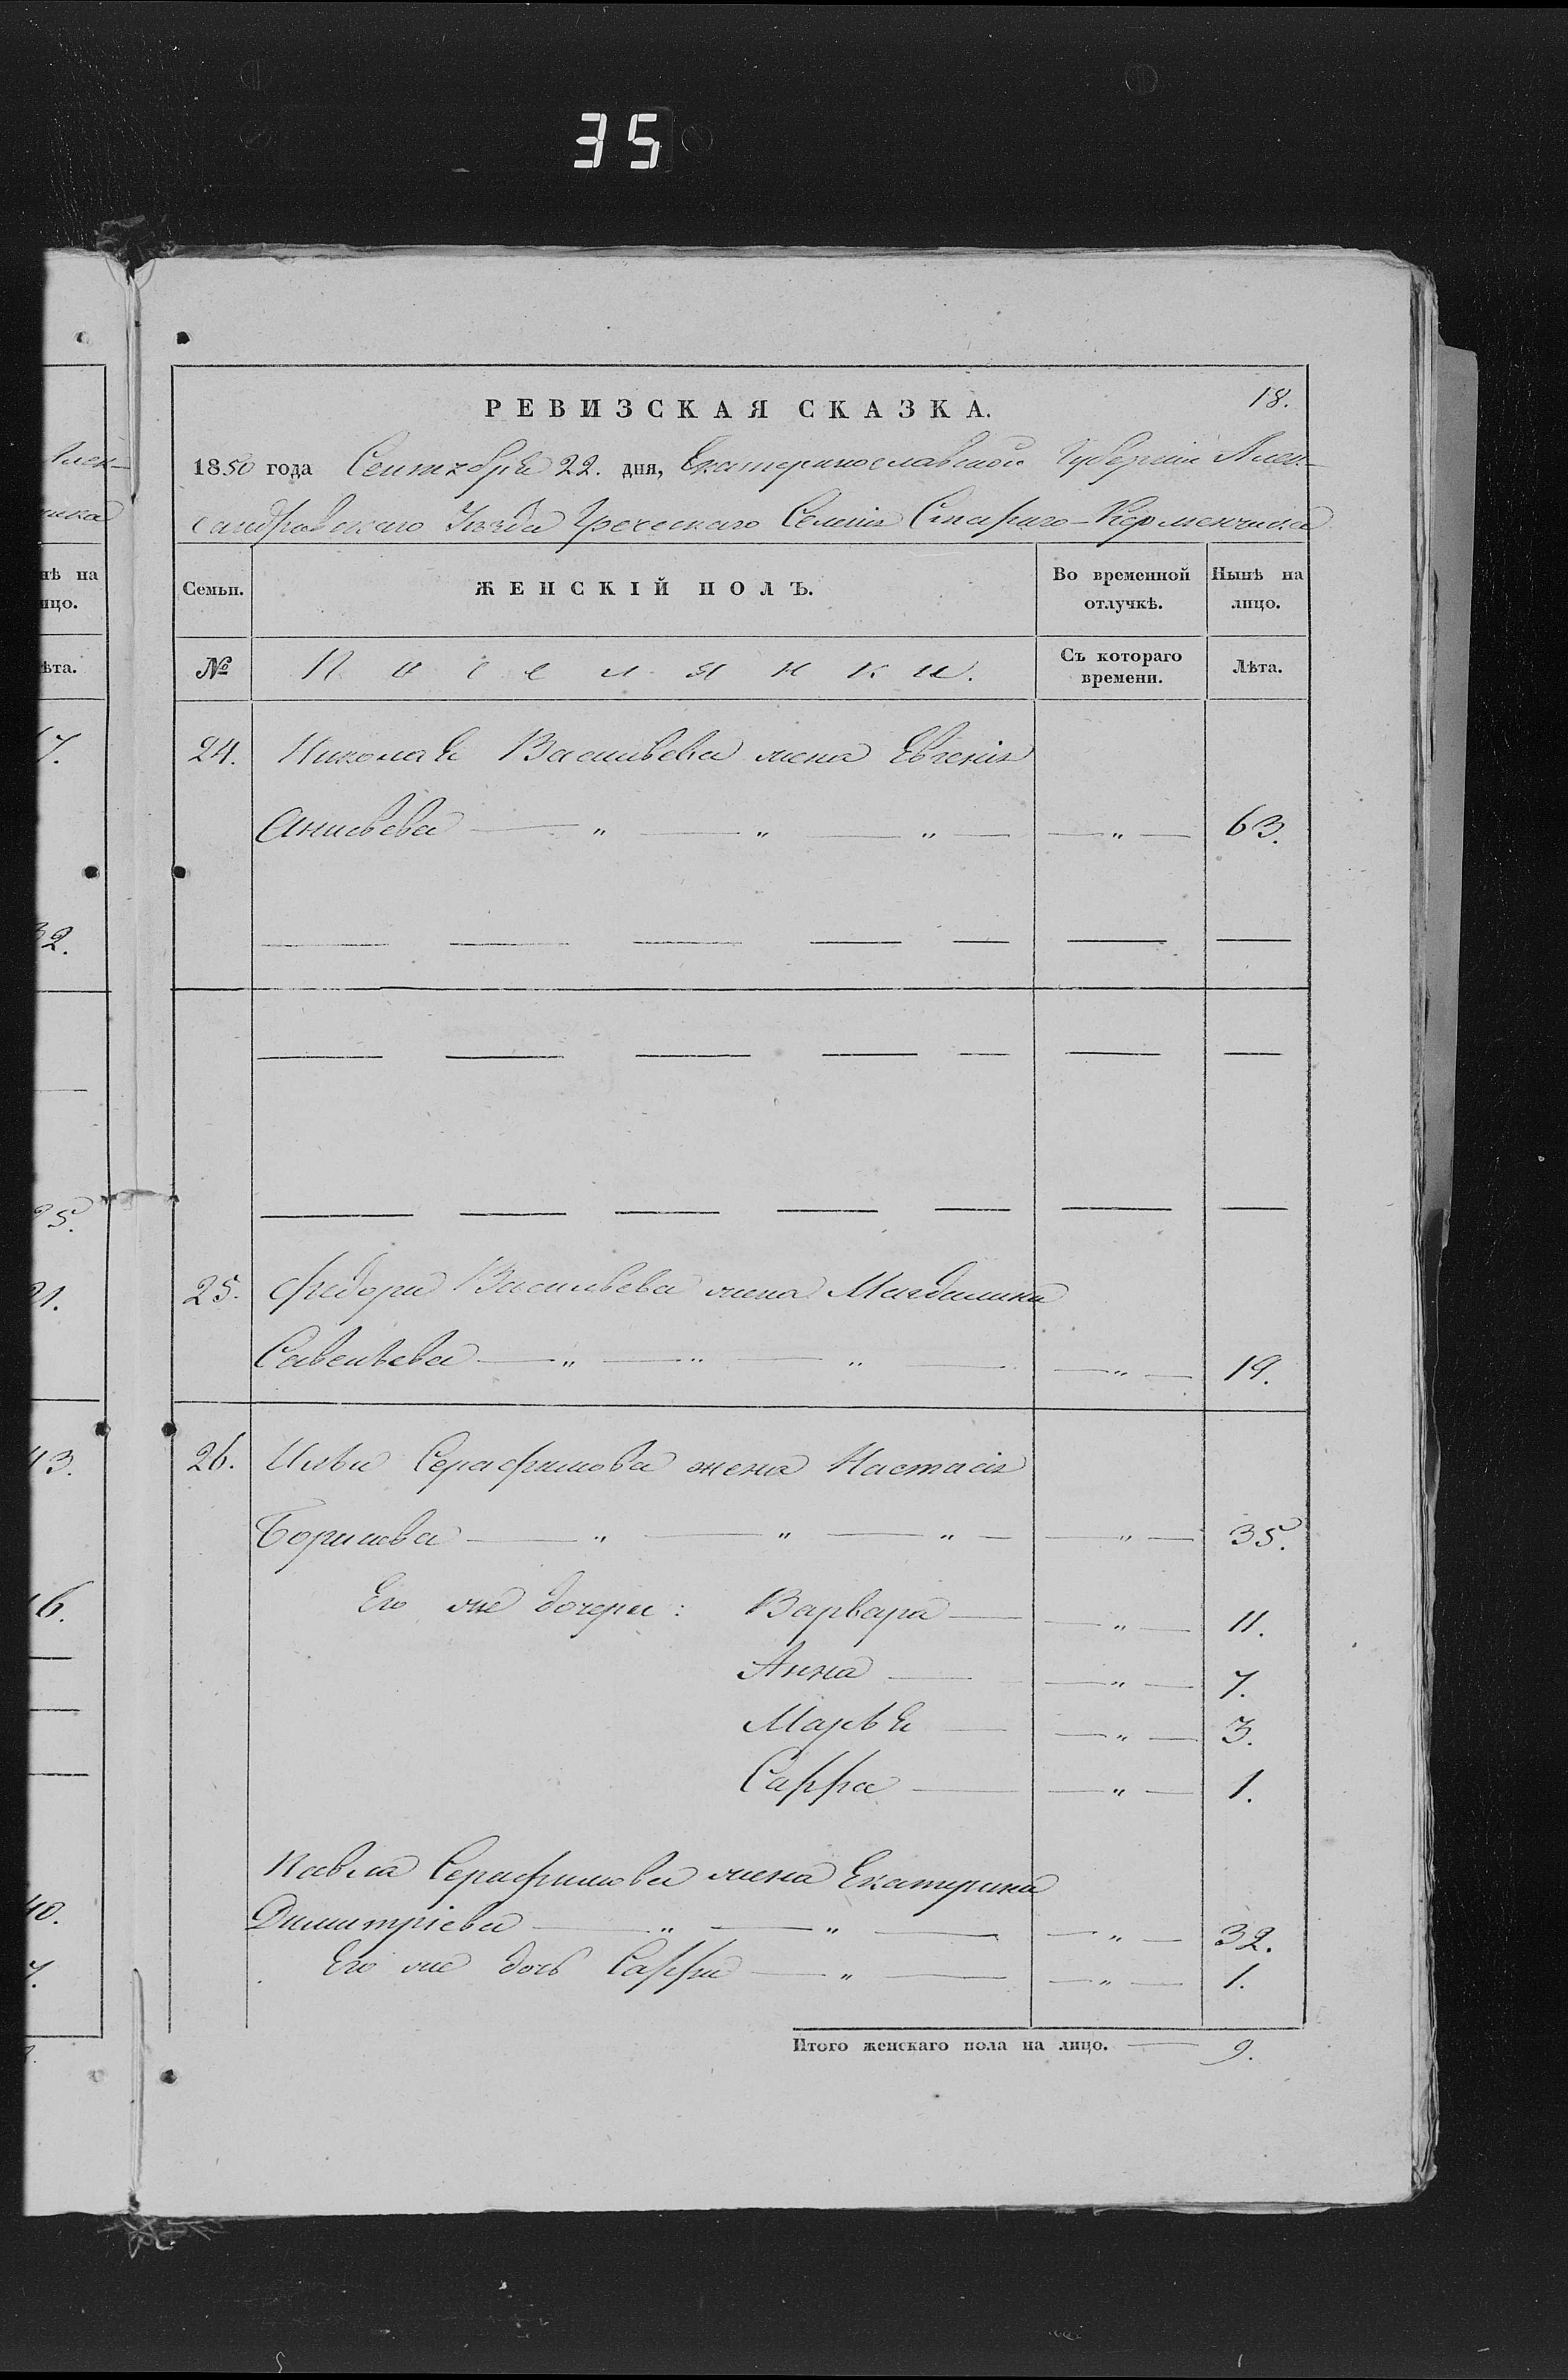 35
18.
РЕВИЗСКАЯ СКАЗКА.
1850 года Сентября 22. дня, Екатеринославской Губернии Алек-
сандровскаго Уезда Греческаго Селенія Стараго-Керменчика
Семьи.
ЖЕНСКІЙ ПОЛЪ.
Во временной отлучкѣ.
Нынѣ на лицо.
№
Поселянки.
Съ котораго времени.
Лѣта.
24. Николая Васильева жена Евгенія
Анисьева — " — " — " — — " — 63.
25. Федора Васильева жена Магдалина
Савельева — " — " — " — — " — 19.
26. Ильи Серафимова жена Настасія
Борисова — " — " — " — — " — 35.
Его же дочери: Варвара — — " — 11.
Анна — — " — 7.
Марья — — " — 3.
Сарра — — " — 1.
Павла Серафимова жена Екатерина
Димитріева — " — " — — " — 32.
Его же дочь Сарра — " — — " — 1.
Итого женскаго пола на лицо. — 9.
лек-
чика
нѣ на
ицо.
ѣта.
7.
32.
25.
21.
43.
16.
40.
7.